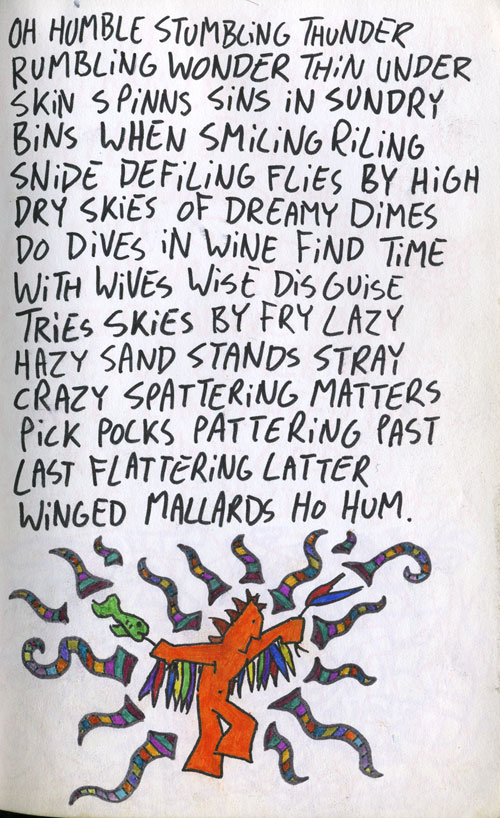 OH HUMBLE STUMBLING THUNDER
RUMBLING WONDER THIN UNDER
SKIN SPINNS SINS IN SUNDRY
BINS WHEN SMILING RILING
SNIDE DEFILING FLIES BY HIGH
DRY SKIES OF DREAMY DIMES
DO DIVES IN WINE FIND TIME
WITH WIVES WISE DISGUISE
TRIES SKIES BY FRY LAZY
HAZY SAND STANDS STRAY
CRAZY SPATTERING MATTERS
PICK POCKS PATTERING PAST
LAST FLATTERING LATTER
WINGED MALLARDS HO HUM.